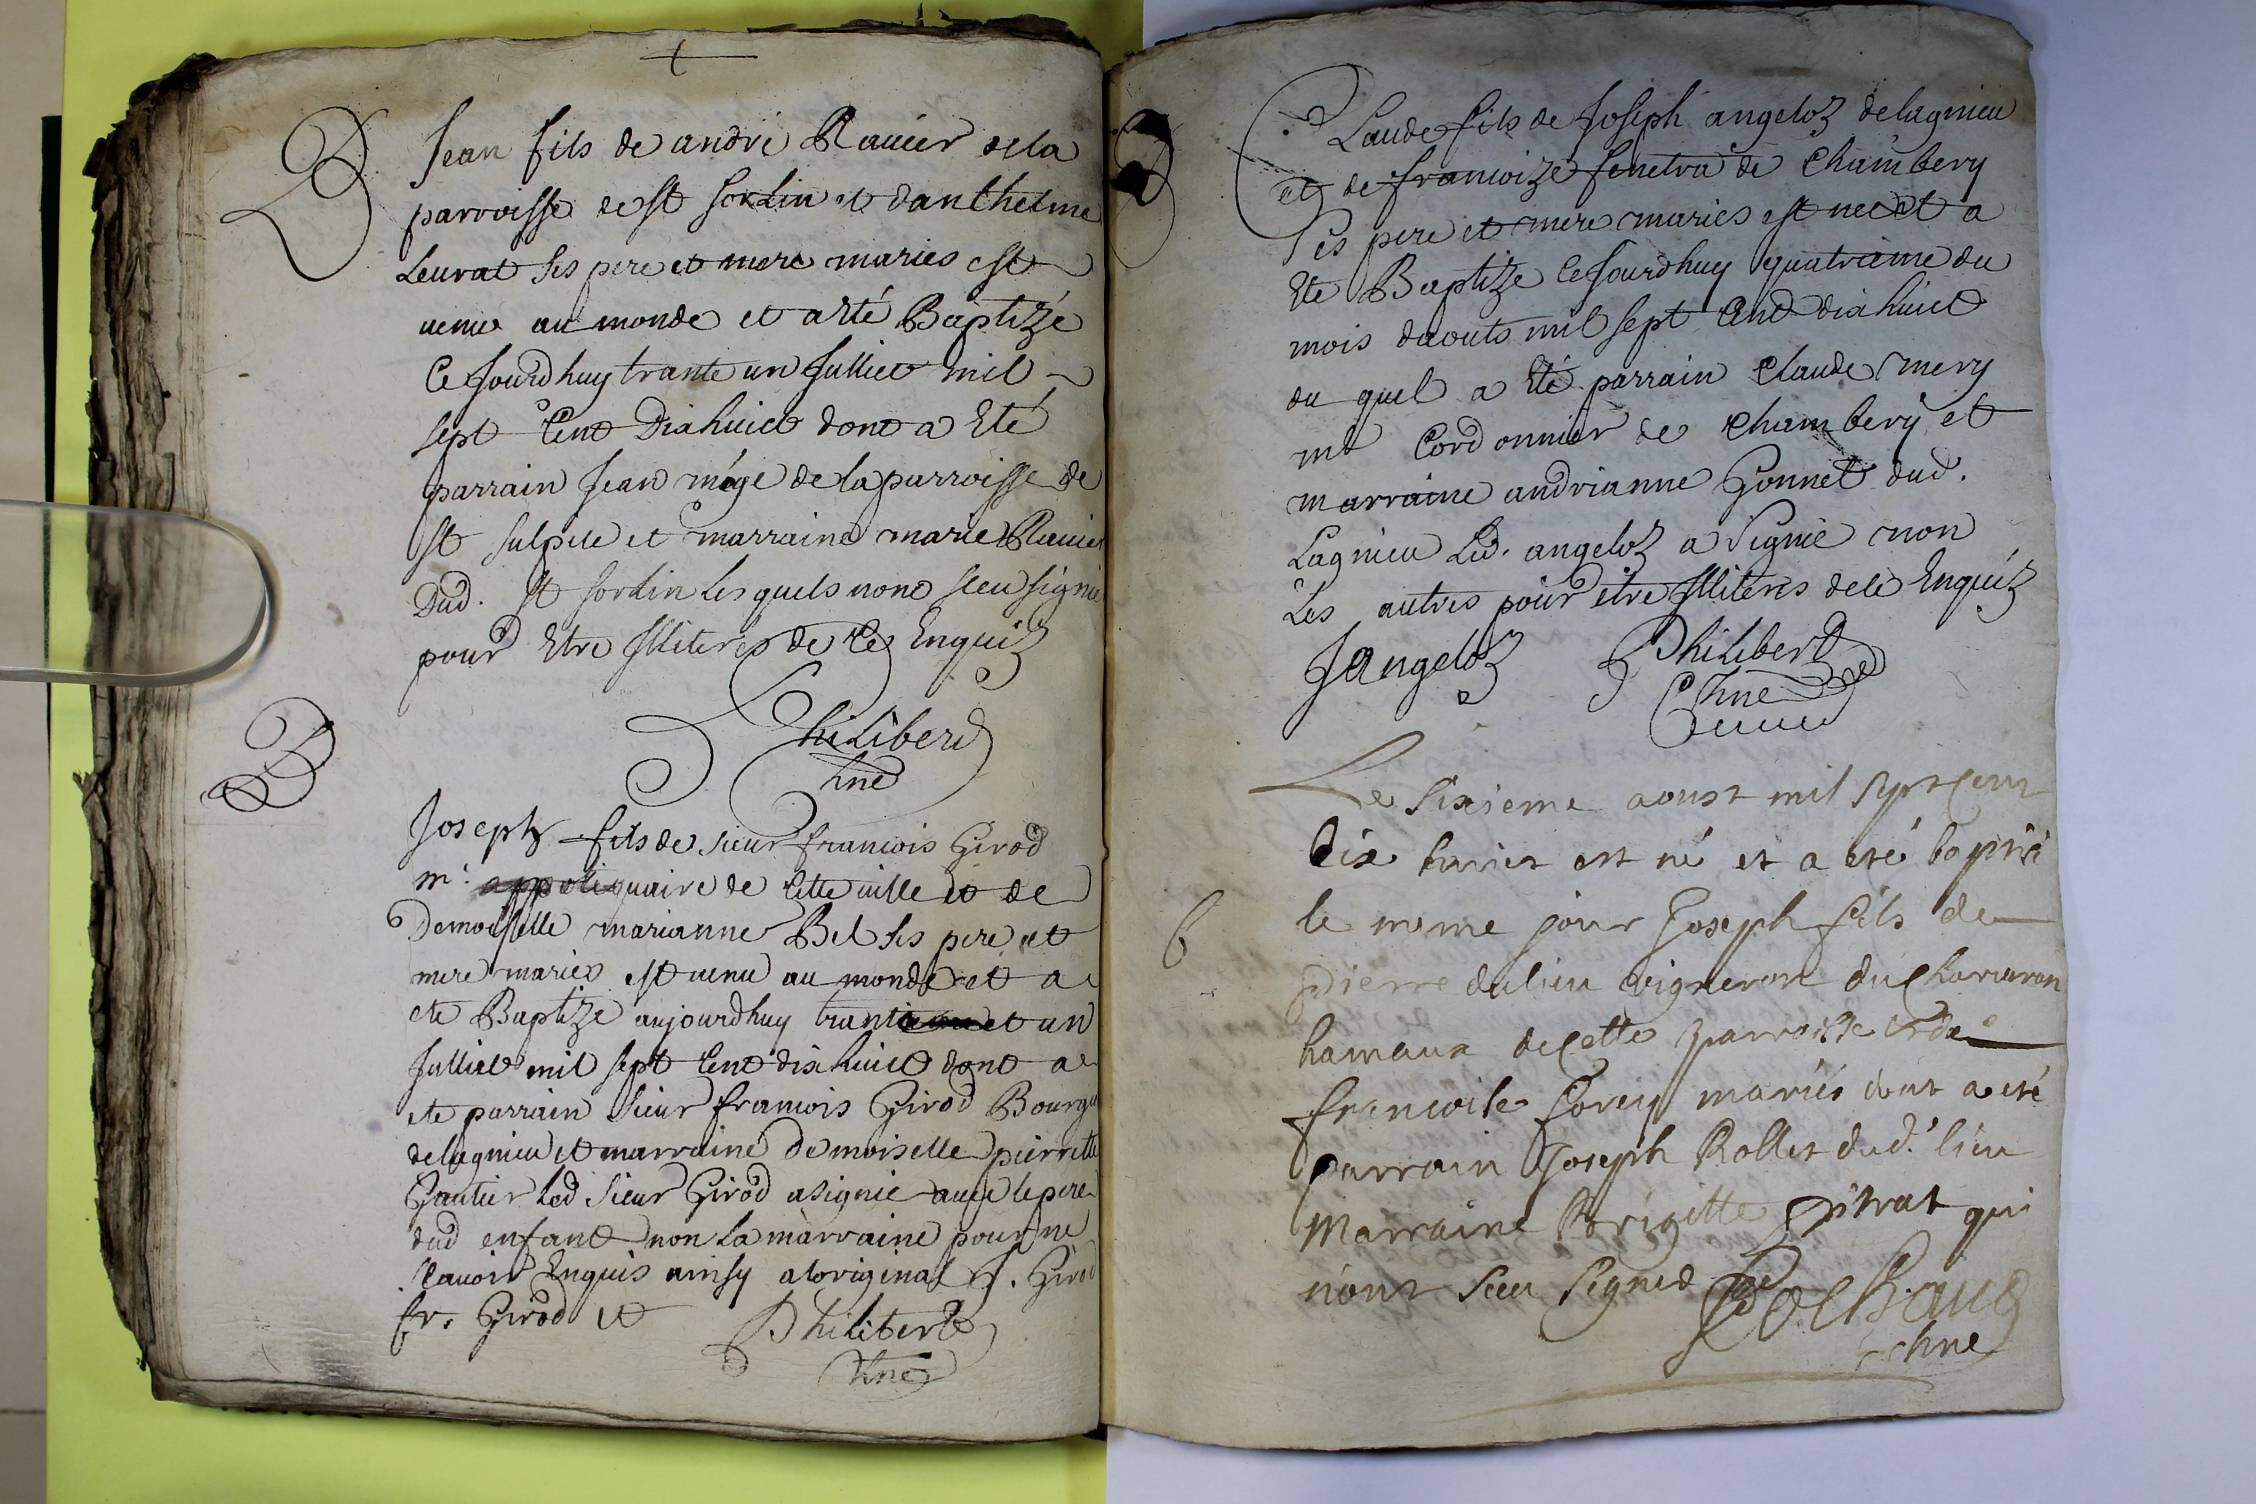 B
Jean fils de andré Rauier de la
parroisse de st sorlin et danthelme
Leurat ses pere et mere mariés est
uenu au monde et a Eté Baptizé
Ce Jourdhuy trante un Julliet mil
sept Cent Dixhuict dont a Eté
parrain Jean mége de la parroisse de
st sulpice et marraine marie Rauier
Dud. st sorlin Les quels nont sceu signé
pour Etre Illiterés de Ce Enquiz
Philiberd
B
Joseph fils de sieur francois Girod
mr. appotiquaire de Cette uille et de
Demoiselle marianne Bel ses pere et
mere mariés est uenu au monde et a
ete Baptizé aujourdhuy trante et un
Julliet mil sept Cent dixhuict dont a
ete parrain sieur francois Girod Bourg
delagnieu et marraine demoiselle pierrette
Gautier Led sieur Girod a signé auec le pere
dud enfant non La marraine pour ne
scauoir Enquis ainsy a loriginal J. Girod
fr. Girod et Philibert
B
Claude fils de Joseph angeloz delagnieu
et de francoize fenetra de Chambery
ses pere et mere mariés est ne et a
Ete Baptize Ce Jourdhuy quatrieme du
mois daouts mil sept Cent dixhuict
du quel a Eté parrain Claude mery
mt Cordonnier de Chambery et
marraine andrianne Gonnet dud.
Lagnieu Led. angeloz a signé non
Les autres pour etre Illiterés de Ce Enquiz
J angeloz Philiberd
Le sixieme aoust mil sept cent
dix huict est né et a eté baptisé
B le meme jour Joseph fils de
pierre dulieu vigneron du Charveron
hamaux de cette parroisse et de
francoise mariés dont a eté
parrain Joseph Rollet dud. lieu
Marraine Brigitte pitrat qui
nont sceu signed